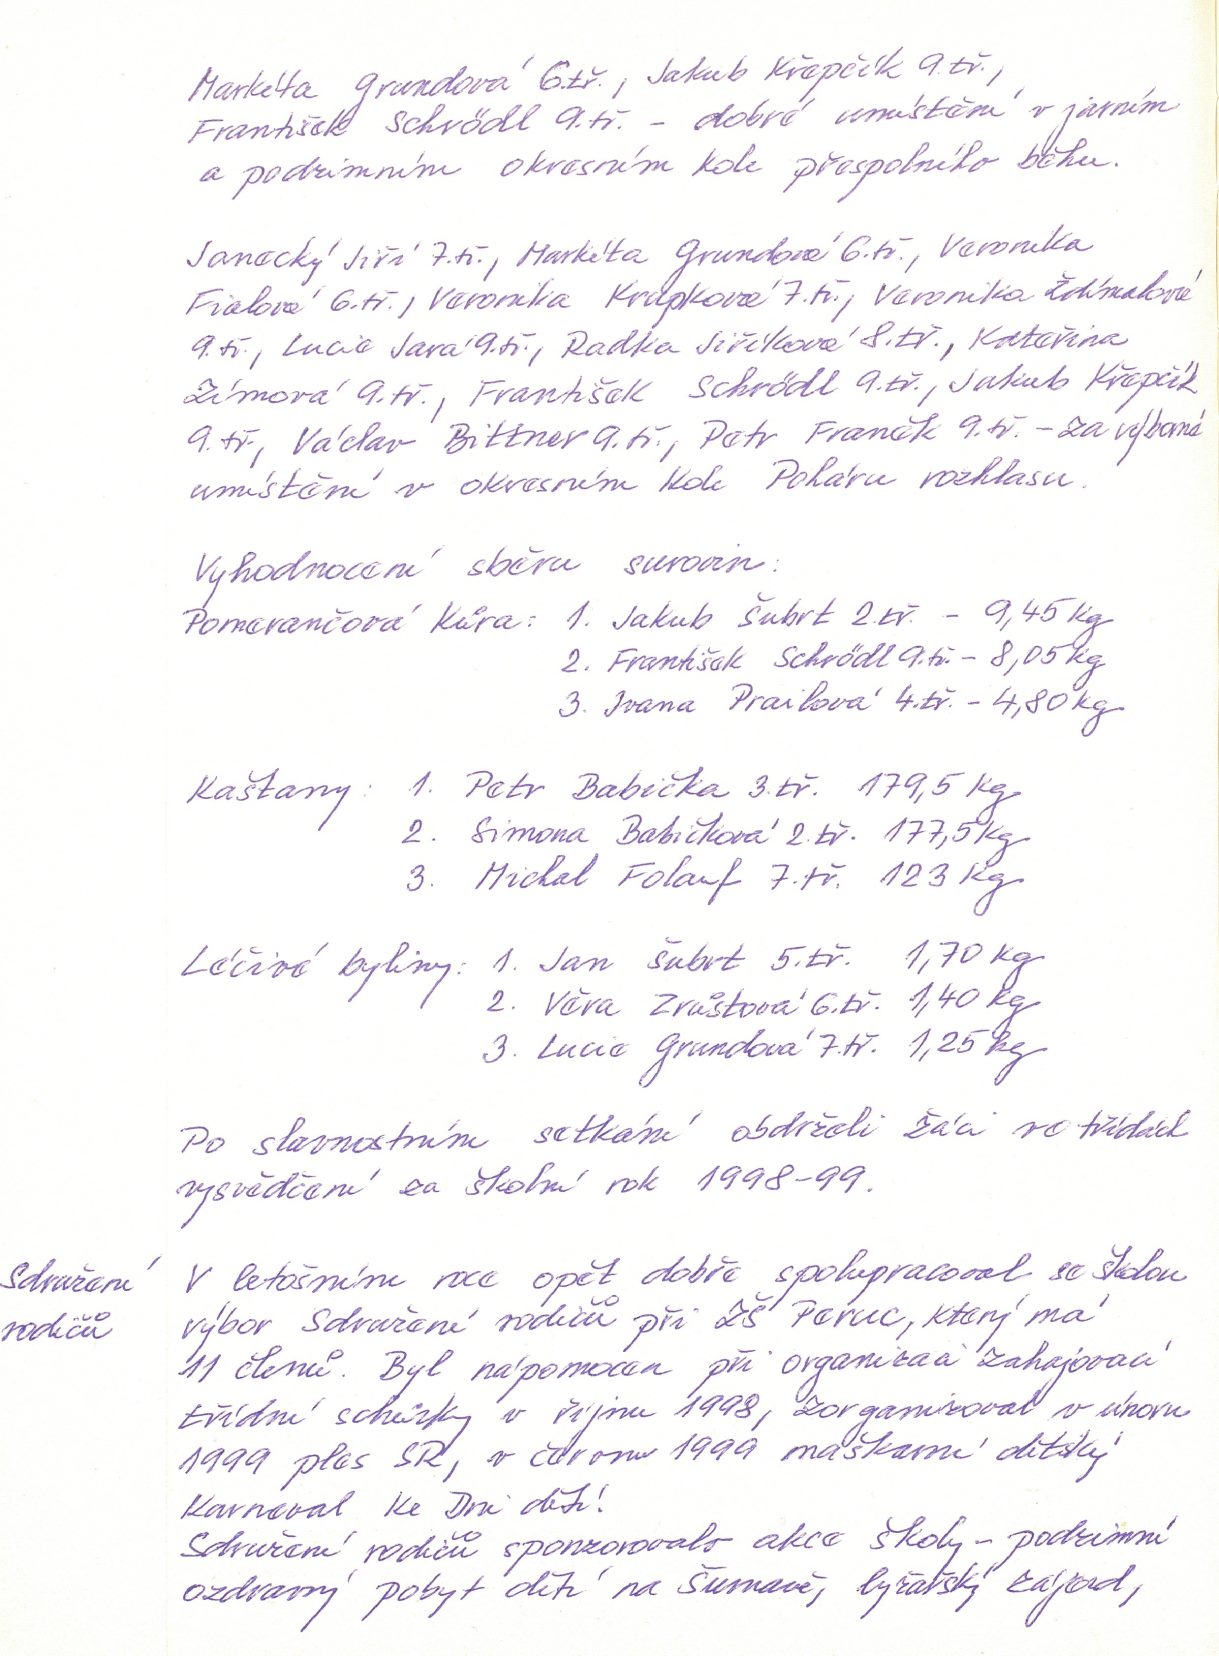 Markéta Grundová 6.tř., Jakub Křepčík 9.tř.,
František Schrödl 9.tř. - dobré umístění v jarním
a podzimním okresním kole přespolního běhu.
Janecký Jiří 7.tř., Markéta Grundová 6.tř., Veronika
Fialová 6.tř., Veronika Krupková 7.tř., Veronika Ždímalová
9.tř., Lucie Jará 9.tř., Radka Jiříková 8.tř., Kateřina
Zímová 9.tř., František Schrödl 9.tř., Jakub Křepčík
9.tř., Václav Bittner 9.tř., Petr Franěk 9.tř. - za výborné
umístění v okresním kole Poháru rozhlasu.
Vyhodnocení sběru surovin:
Pomerančová kůra: 1. Jakub Šubrt 2.tř. - 9,45 kg
2. František Schrödl 9.tř. - 8,05 kg
3. Ivana Prailová 4.tř. - 4,80 kg
Kaštany: 1. Petr Babička 3.tř. 179,5 kg
2. Simona Babičková 2.tř. 177,5 kg
3. Michal Folauf 7.tř. 123 kg
Léčivé byliny: 1. Jan Šubrt 5.tř. 1,70 kg
2. Věra Zrůstová 6.tř. 1,40 kg
3. Lucie Grundová 7.tř. 1,25 kg
Po slavnostním setkání obdrželi žáci ve třídách
vysvědčení za školní rok 1998-99.
Sdružení
rodičů
V letošním roce opět dobře spolupracoval se školou
výbor Sdružení rodičů při ZŠ Peruc, který má
11 členů. Byl nápomocen při organizaci zahajovací
třídní schůzky v říjnu 1998, zorganizoval v únoru
1999 ples SR, v červnu 1999 maškarní dětský
karneval ke Dni dětí.
Sdružení rodičů sponzorovalo akce školy - podzimní
ozdravný pobyt dětí na Šumavě, lyžařský zájezd,